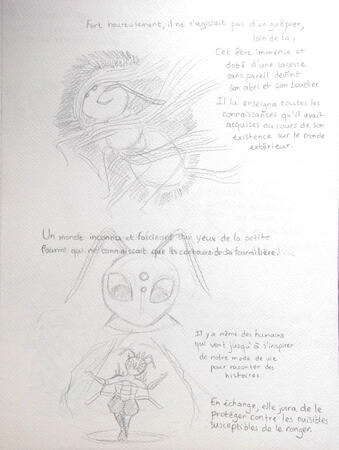 Fort heureusement, il ne s'agissait pas d'un guêpier,
loin de là..
Cet être immense et
doté d'une sagesse
sans pareil devint
son abri et son bouclier
Il lui enseigna toutes les
connaissances qu'il avait
acquises au cours de son
existence sur le monde
extérieur.
Un monde inconnu et fascinant aux yeux de la petite
fourmi qui ne connaissait que les contours de sa fourmilière!
Il y a même des humains
qui vont jusqu'à s'inspirer
de notre mode de vie
pour raconter des
histoires.
En échange, elle jura de le
protéger contre les nuisibles
susceptibles de le ronger.